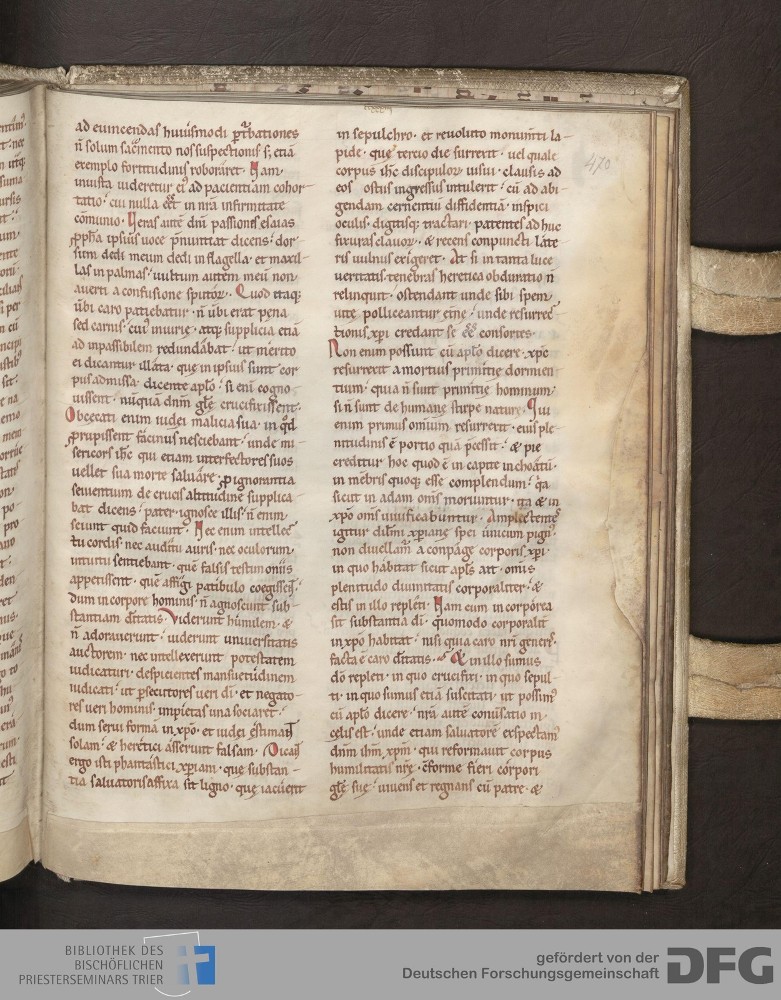 ad euincendas huiusmodi ꝑt̃bationes
ñ solum sac̃mento nos suspectionis s; etiã
exemplo fortitudinis roboraret. Nam
iniusta uideretur ei᷒ ad pacientiam cohor
tatio. cui nulla ee͂t in nr̃a infirmitate
cõmunio. Veras autẽ dñi passiones esaias
ꝓph̃a ipsius uoce p̃nuntiat dicens. dor
sum dedi meum dedi in flagella. et maxil
las in palmas. uultum autem meũ non
auerti a confusione sputoꝝ. Quod itaq;
uerbi caro patiebatur. ñ ubi erat pena
sed carnis. cui᷒ iniurię. atq; supplicia etiã
ad inpassibilem redundabat. ut merito
ei dicantur illata. que in ipsius sunt cor
pus admissa. dicente apl̃o. si enĩ cogno
uissent. nũquã dnm̃ glę crucifixissent.
Obcecati enim iudei malicia sua. in qd̃
prupissent facinus nesciebant. unde mi
sericors ihc̃ qui etiam interfectores suos
uellet sua morte saluare. ꝓ ignorantia
seuientium de crucis altitudine supplica
bat dicens. pater. ignosce illis. ñ enim
sciunt quid faciunt. Nec enim intellec
tu cordis. nec auditu auris. nec oculorum
intuitu sentiebant. quẽ falsis testimoniis
appetissent. quẽ affigi patibulo coegissent.
dum in corpore hominis. ñ agnoscunt sub
stantiam d̃itatis. Viderunt humilem. &
ñ adorauerunt. uiderunt uniuersitatis
auctorem. nec intellexerunt potestatem
iudicaturi. despicientes mansuetudinem
iudicati. ut ꝑsecutores ueri d̃i. et negato
res ueri hominis. impietas una sociaret.
dum serui formã in xp̃o. et iudei estimant
solam. & heretici asserunt falsam. Dicant
ergo isti phantastici xp̃iani. que substan
tia saluatoris affixa sit ligno. que iacuerit
in sepulchro. et reuoluto monum̃ti la
pide. que tercio die surrexit. uel quale
corpus ihc̃ discipuloꝝ uisui. clausis ad
eos ostiis ingressus intulerit. cũ ad abi
gendam cernentiũ diffidentiã. inspici
oculis. digitisq; tractari. patentes ad huc
fixuras clauoꝝ. & recens conpuncti late
ris uulnus exigeret. At si in tanta luce
ueritatis. tenebras heretica obduratio ñ
relinquit. ostendant unde sibi spem
uite polliceantur etnę. unde resurrec
tionis xp̃i credant se ee͂ consortes.
Non enim possunt cũ apl̃o dicere. xp̃c
resurrexit a mortuis primitię dormien
tium. quia ñ sunt primitię hominum.
si ñ sunt de humane stirpe nature. Qui
enim primus omium resurrexit. eius ple
nitudinis ẽ portio quã p̃cessit. & pie
creditur hoc quod ẽ in capite inchoatũ.
in mẽbris quoq; esse complendum. q̃a
sicut in adam oms̃ moriuntur. ita & in
xp̃o oms̃ uiuificabuntur. Amplectentes
igitur dilm̃i xp̃iane spei unicum pign᷒.
non diuellam̃ a conpage corporis xp̃i.
in quo habitat sicut apls̃ ait. omis
plenitudo diuinitatis corporaliter. &
estis in illo repleti. Nam cum in corporea
sit substantia d̃i. quomodo corporalit̃
in xp̃o habitat. nisi quia caro nr̃i generis.
facta ẽ caro d̃itatis. & in illo sumus
d̃o repleti. in quo crucifixi. in quo sepul
ti. in quo sumus etiã suscitati. ut possim᷒
cũ apl̃o dicere. nr̃a autẽ conũsatio in
cęlis est. unde etiam saluatorẽ exspectam᷒
dnm̃ ihm̃ xpm̃. qui reformauit corpus
humilitatis nr̃ę. cforme fieri corpori
glę suę. uiuens et regnans cũ patre. &
470
BIBLIOTHEK DES
BISCHÖFLICHEN
PRIESTERSEMINARS TRIER
gefördert von der
Deutschen Forschungsgemeinschaft
DFG